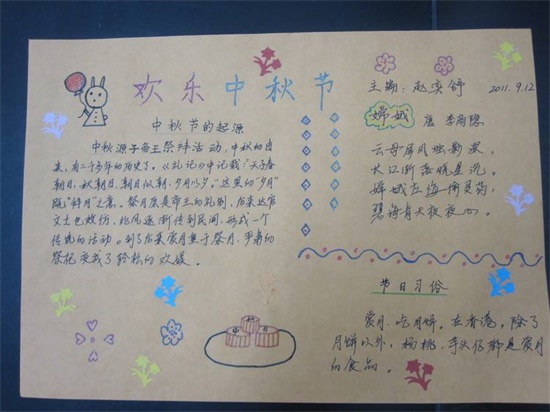 欢乐中秋节
主编:赵奕舒 2011.9.12
中秋节的起源
中秋源于帝王祭拜活动,中秋的由
来,有二千多年的历史了。《礼记》中记载:"天子春
朝日,秋朝月,朝日以朝,夕月以夕。"这里的"夕月"
既"拜月"之意。祭月原是帝王的礼制,后来达官
文士也效仿,此风逐渐传到民间,形成一个
传统的活动。到了后来赏月重于祭月,严肃的
祭祀变成了轻松的欢娱。
嫦娥 唐 李商隐
云母屏风烛影深,
长江渐落晓星沉。
嫦娥应悔偷灵药,
碧海青天夜夜心。
节日习俗
赏月、吃月饼。在香港,除了
月饼以外,杨桃、芋头仔都是赏月
的食品。